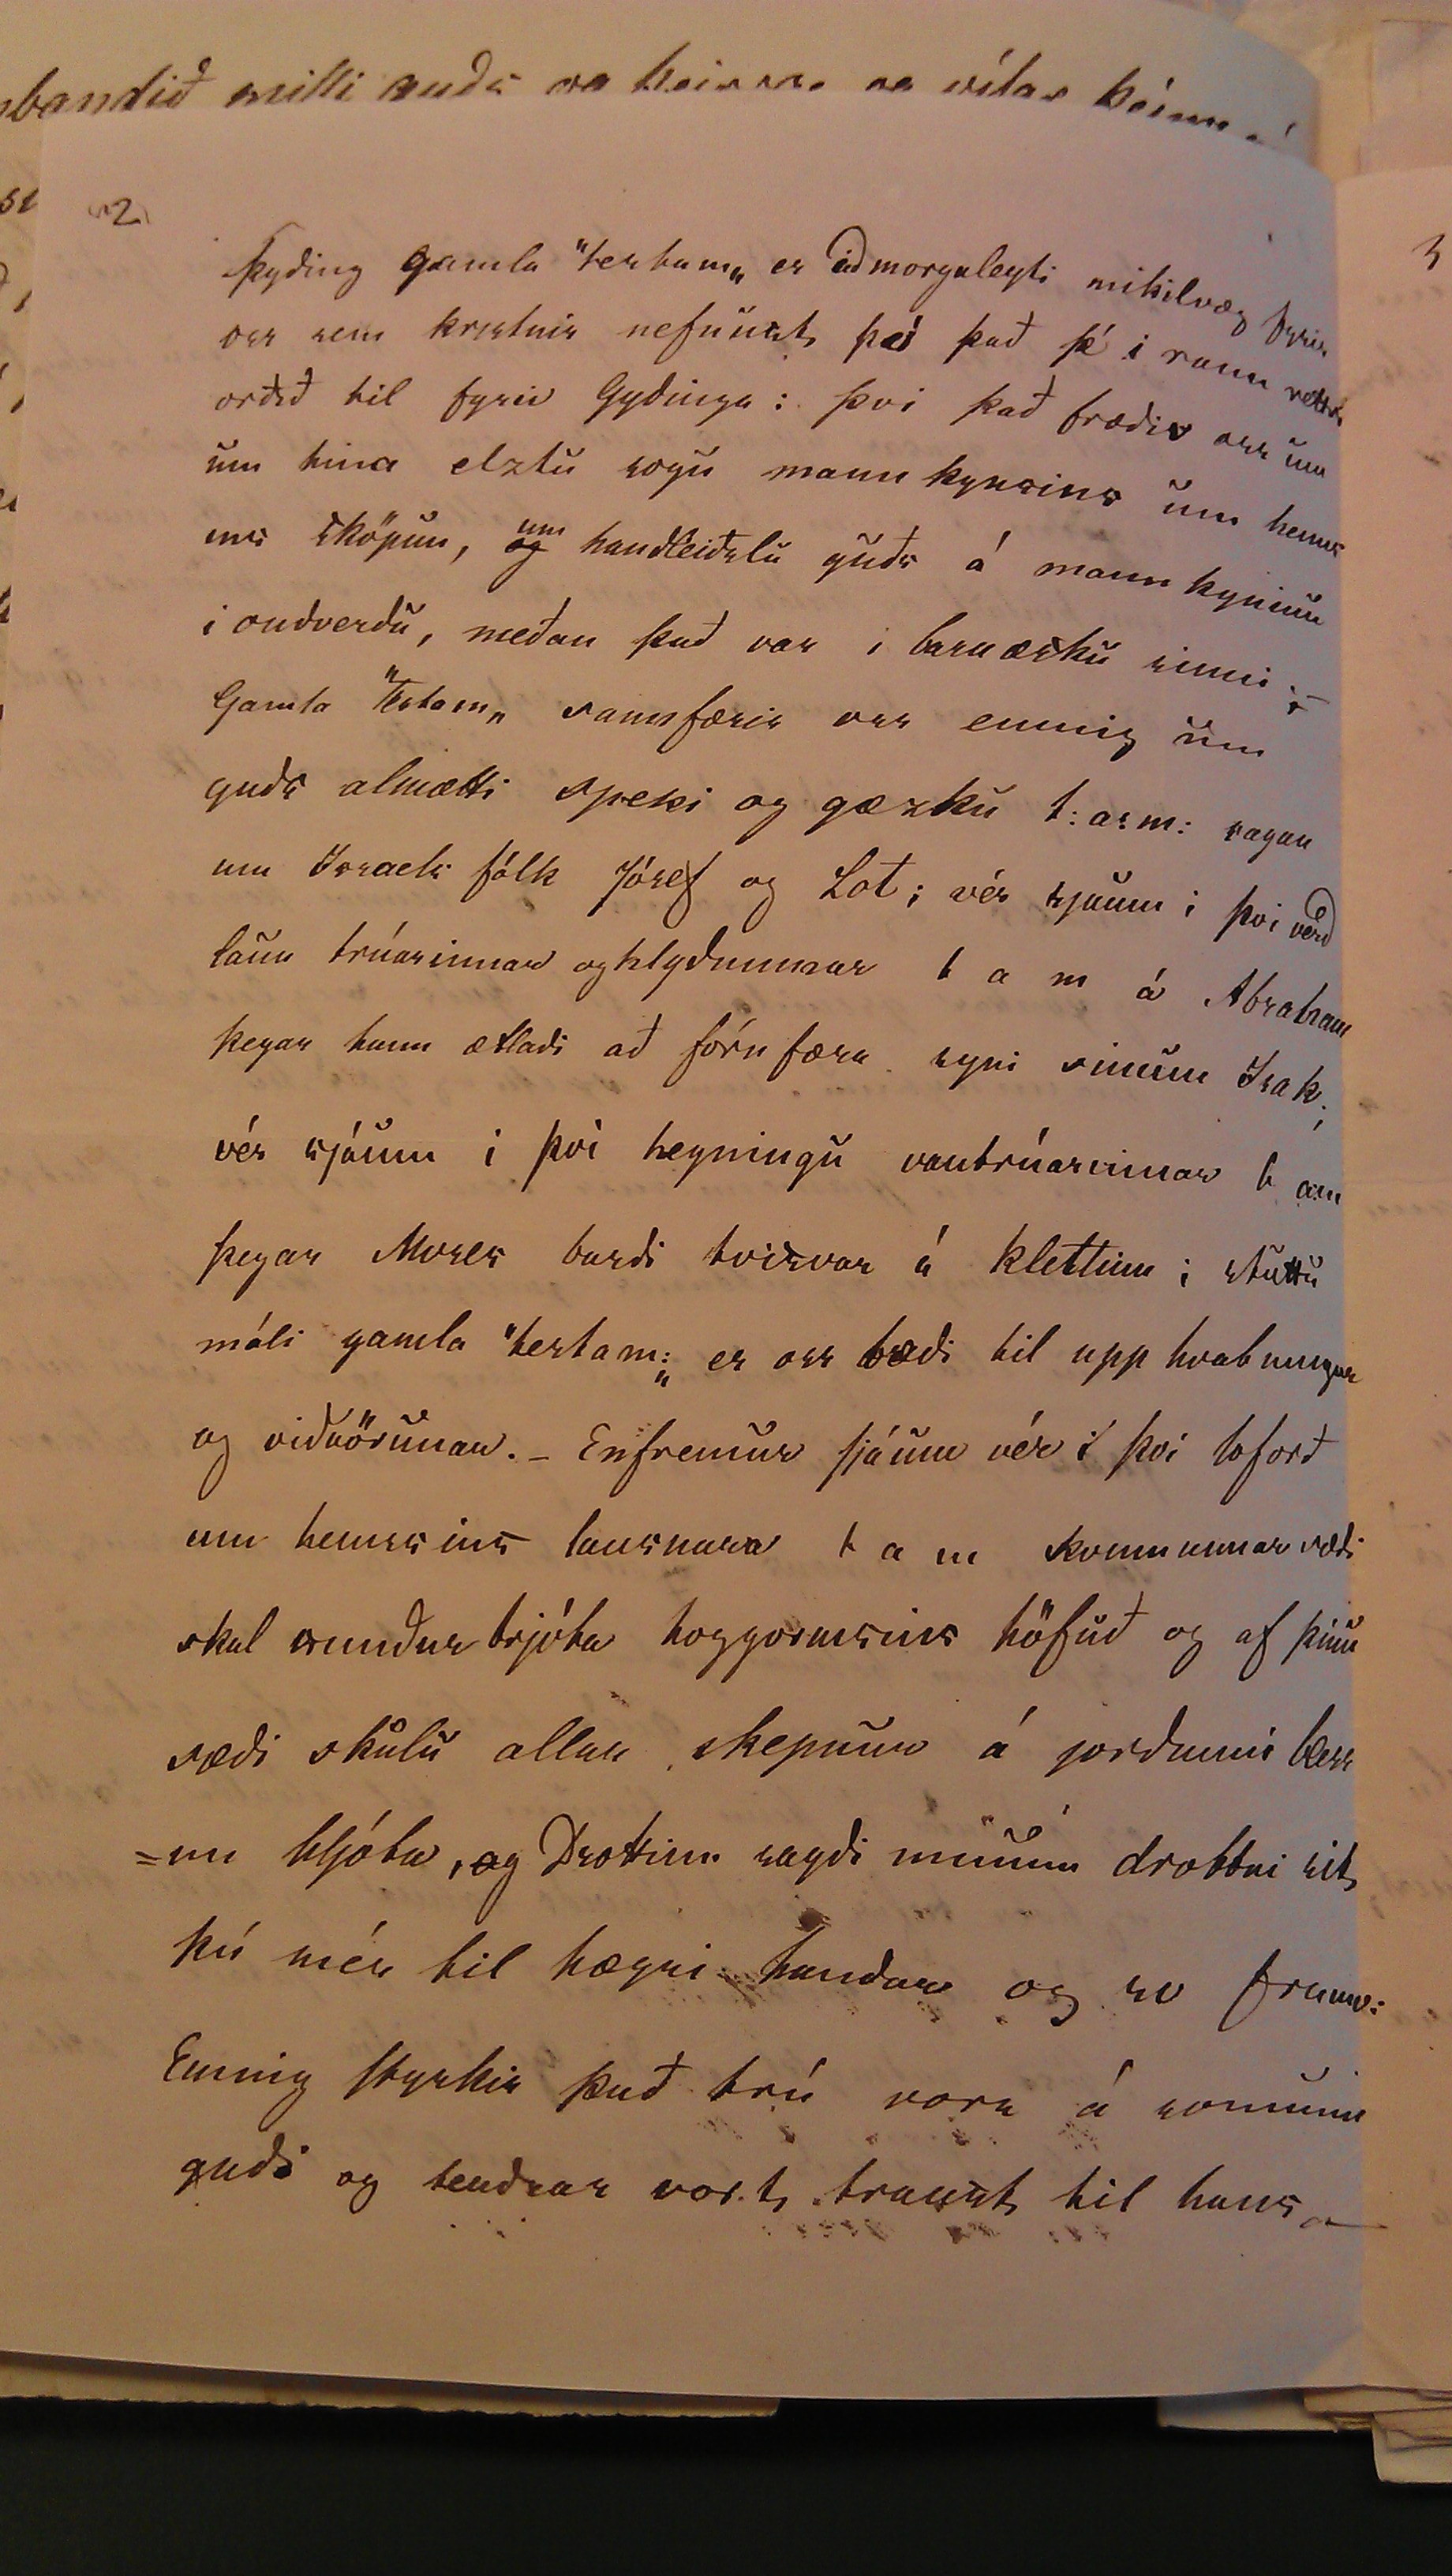 2
Þyðing gamla "testam„ er að morguleyti mikilvæg fyrir
oss sem kristnir nefnunst, þó það sé i raun rettri
orðið til fyrir Gyðinga: þvi það fræðir oss um
um hina elztu sogu mannkynsins um heims
ins sköpun, um handleiðslu guðs á mannkyninu
i ondverdu, meðan það var i barnæsku sinni :-
Gamla "Testam„ sannfærir oss emnig um
guðs almætti speki og gæzku t: a: m: sagan
um Israels fólk Jósef og Lot; vér sjaum i þvi verð
laun trúarinnar og hlyðnunnar t a m á Abraham
þegar hann ætlaði að fórnfæra syni sinum Isak;
vér sjáum i þvi hegningu vantrúarinnar t am
þegar Moses barði tvisvar á klettinn; stuttu
máli gamla "testam:„ er oss bæði til upp hvatnungar
og viðvörunar. – Enfremur sjáum vér i þvi loforð
um heimsins lausnara t a m kvennunnar sæði
skal sundur brjóta hoggormsins höfuð og af þinu
sæði skulu allar skepnur á jorðunni bless
=un hljóta, og Drottinn sagði minum drottni sit,
þú mér til hægri handar og sv framv:
Einnig styrkir það trú vora á sonnum
guði og tendrar vort, traust, til hans